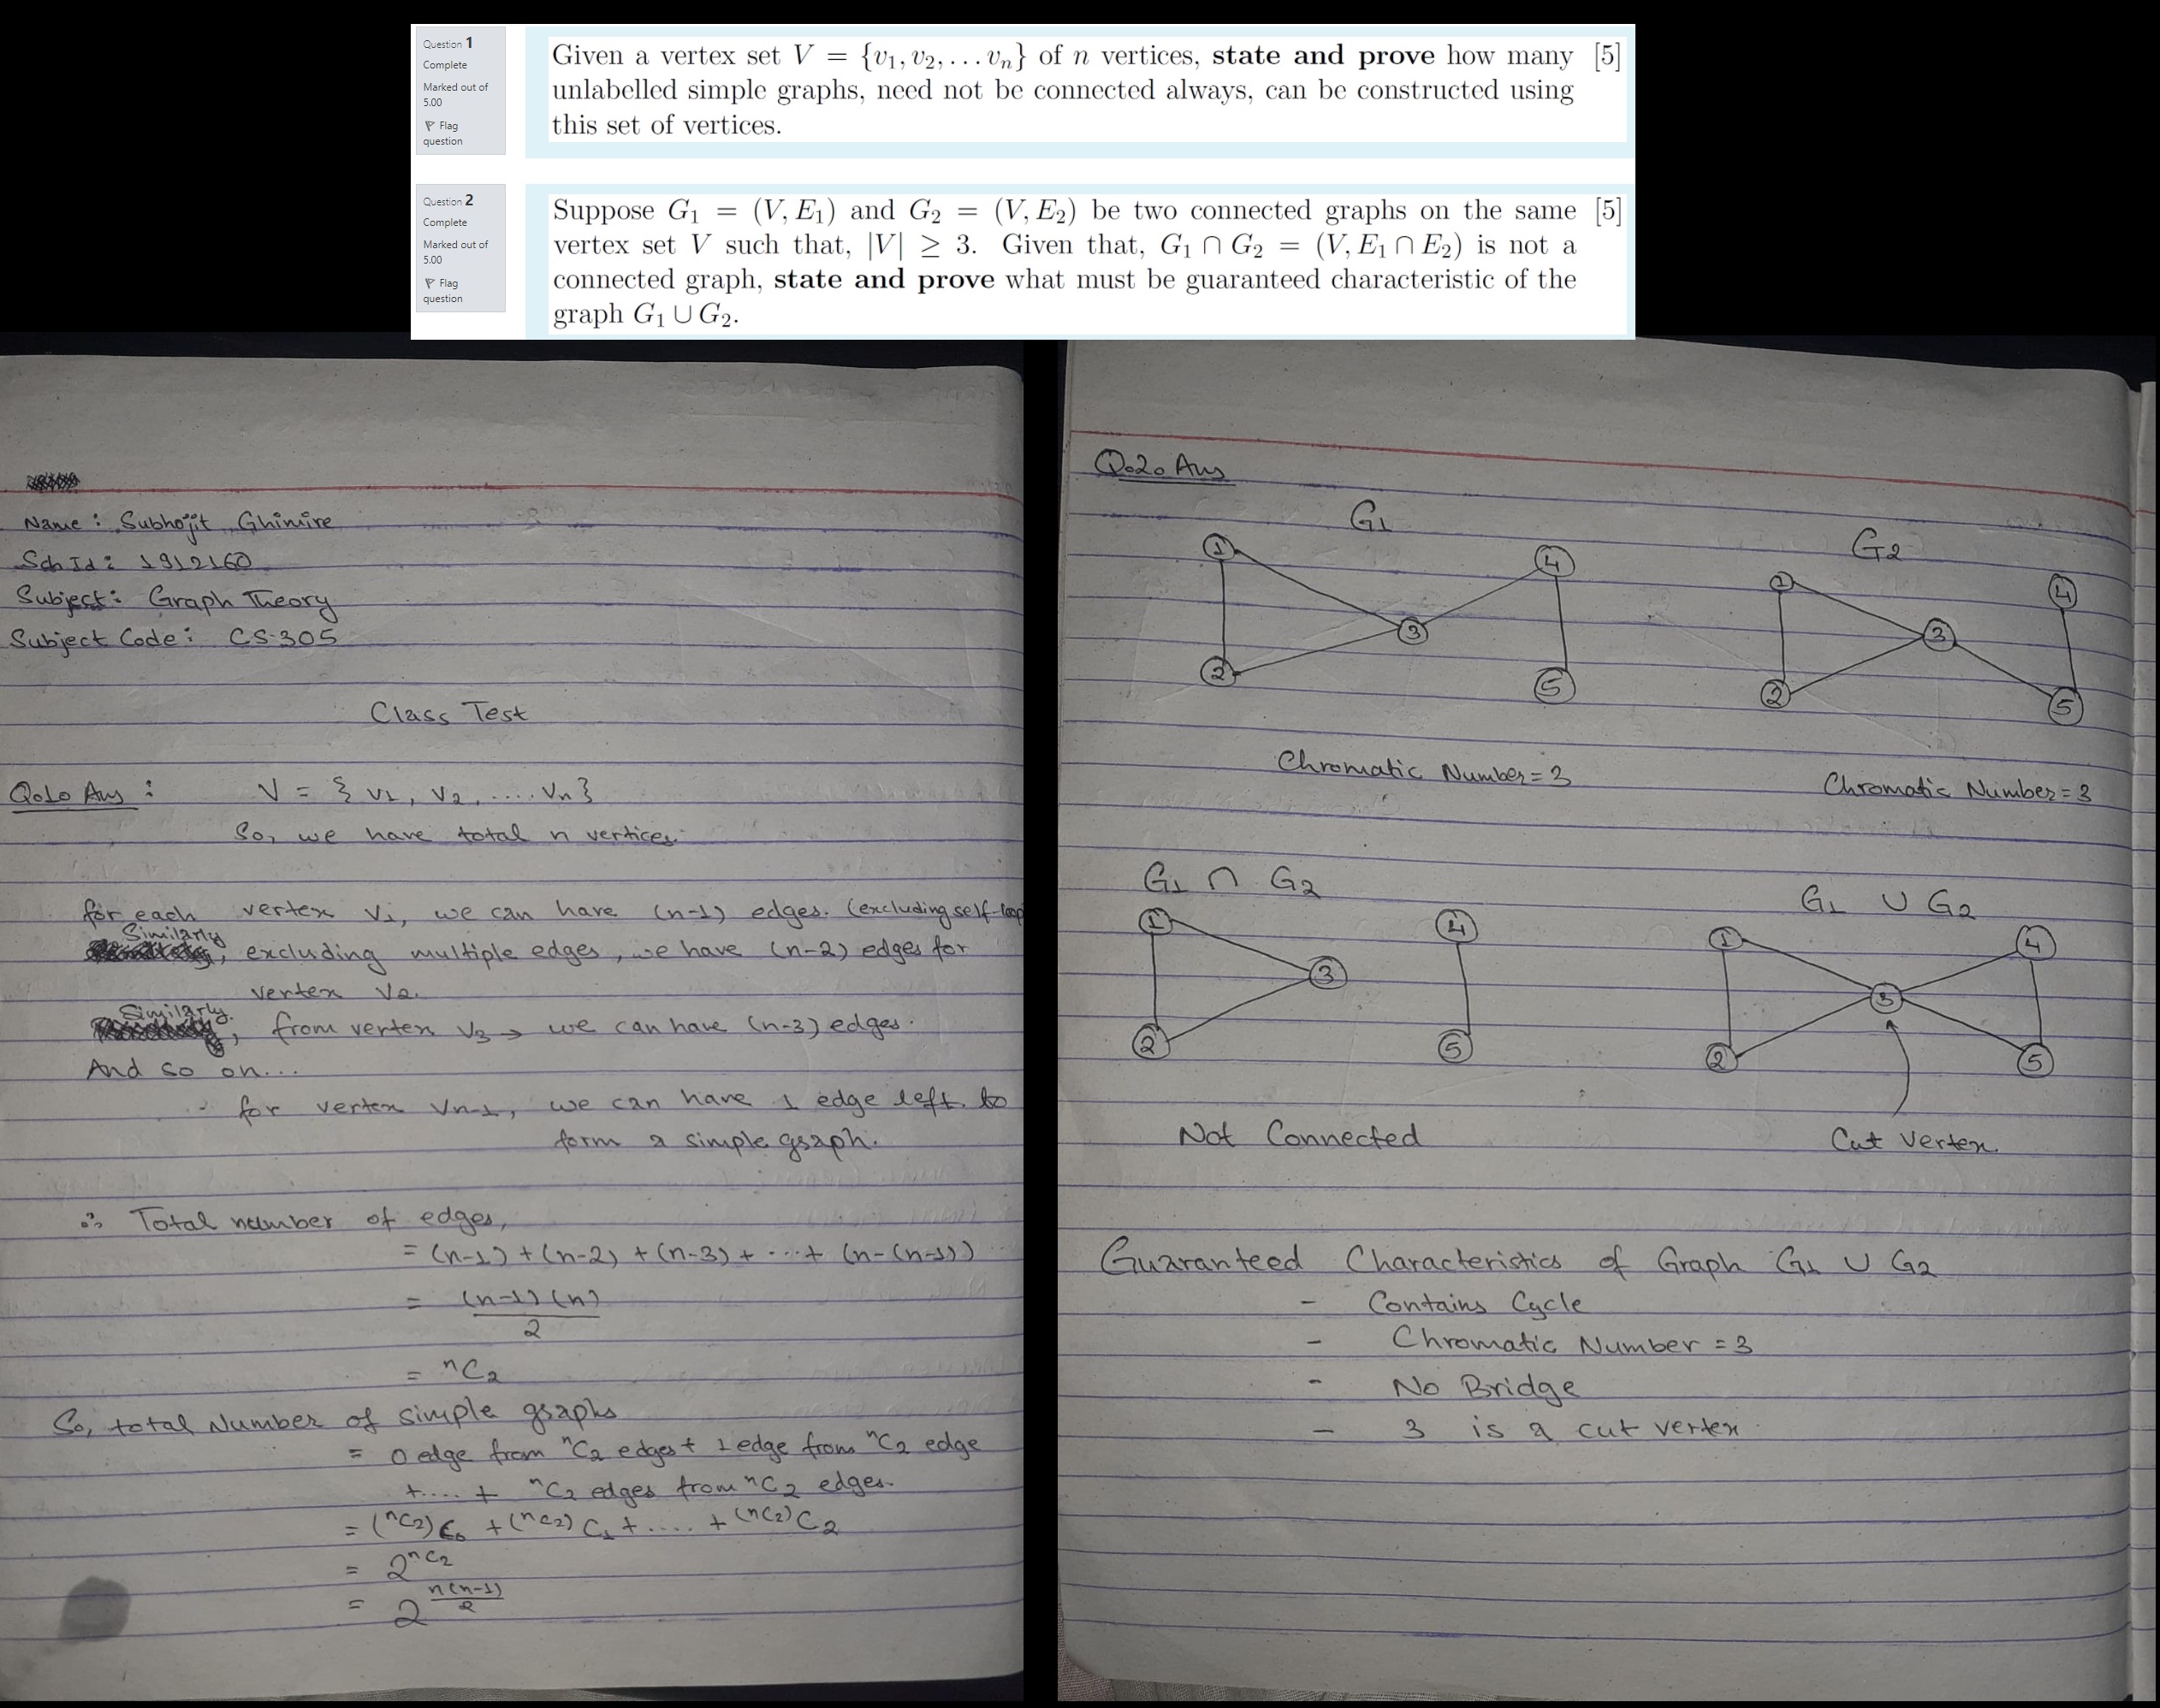 Question 1
Complete
Marked out of
5.00
Flag
question
Given a vertex set V = {v₁, v₂, ... vₙ} of n vertices, state and prove how many [5]
unlabelled simple graphs, need not be connected always, can be constructed using
this set of vertices.
Question 2
Complete
Marked out of
5.00
Flag
question
Suppose G₁ = (V, E₁) and G₂ = (V, E₂) be two connected graphs on the same [5]
vertex set V such that, |V| ≥ 3. Given that, G₁ ∩ G₂ = (V, E₁ ∩ E₂) is not a
connected graph, state and prove what must be guaranteed characteristic of the
graph G₁ ∪ G₂.
Name: Subhojit Ghimire
Sch Id: 1912160
Subject: Graph Theory
Subject Code: CS-305
Class Test
Q.1. Ans: V = {v₁, v₂, .... vₙ}
So, we have total n vertices.
for each vertex vᵢ, we can have (n-1) edges. (excluding self-loop
Similarly, excluding multiple edges, we have (n-2) edges for
vertex v₂.
Similarly, from vertex v₃ → we can have (n-3) edges.
And so on...
for vertex vₙ₋₁, we can have 1 edge left to
form a simple graph.
∴ Total number of edges,
= (n-1) + (n-2) + (n-3) + ... + (n-(n-1))
= (n-1)(n)
2
= ⁿC₂
So, total Number of simple graphs
= 0 edge from ⁿC₂ edges + 1 edge from ⁿC₂ edge
+.... + ⁿC₂ edges from ⁿC₂ edges.
= (ⁿC₂)C₀ + (ⁿC₂)C₁ + .... + (ⁿC₂)C₂
= 2^ⁿC₂
= 2^n(n-1)/2
Q.2. Ans
G₁
1
4
3
2
5
Chromatic Number = 3
G₂
1
4
3
2
5
Chromatic Number = 3
G₁ ∩ G₂
1
4
3
2
5
Not Connected
G₁ ∪ G₂
1
4
3
2
5
Cut Vertex
Guaranteed Characteristics of Graph G₁ ∪ G₂
- Contains Cycle
- Chromatic Number = 3
- No Bridge
- 3 is a cut vertex